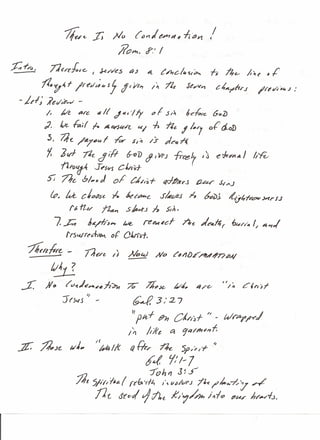 There Is No Condemnation !
Rom. 8:1
Intro. Therefore, serves as a conclusion to the line of
thought previously given in the seven chapters previous:
- Let's Review -
1. We are all guilty of sin before GOD
2. We fail to measure up to the glory of GOD
3. The payout for sin is death
4. But the gift GOD gives freely is eternal life
through Jesus Christ
5. The blood of Christ atones our sins
6. We choose to become slaves to God's Righteousness
rather than slaves to sin.
7. In baptism we reenact the death, burial, and
resurrection of Christ.
Therefore - There is Now No Condemnation
Why?
I. No Condemnation To Those who are "in Christ
Jesus" - Gal. 3:27
"put on Christ" - wrapped
in like a garment.
II. Those who "walk after the Spirit"
Gal. 4:1-7
John 3:5
The Spiritual rebirth involves the planting of
The seed of the Kingdom into our hearts.